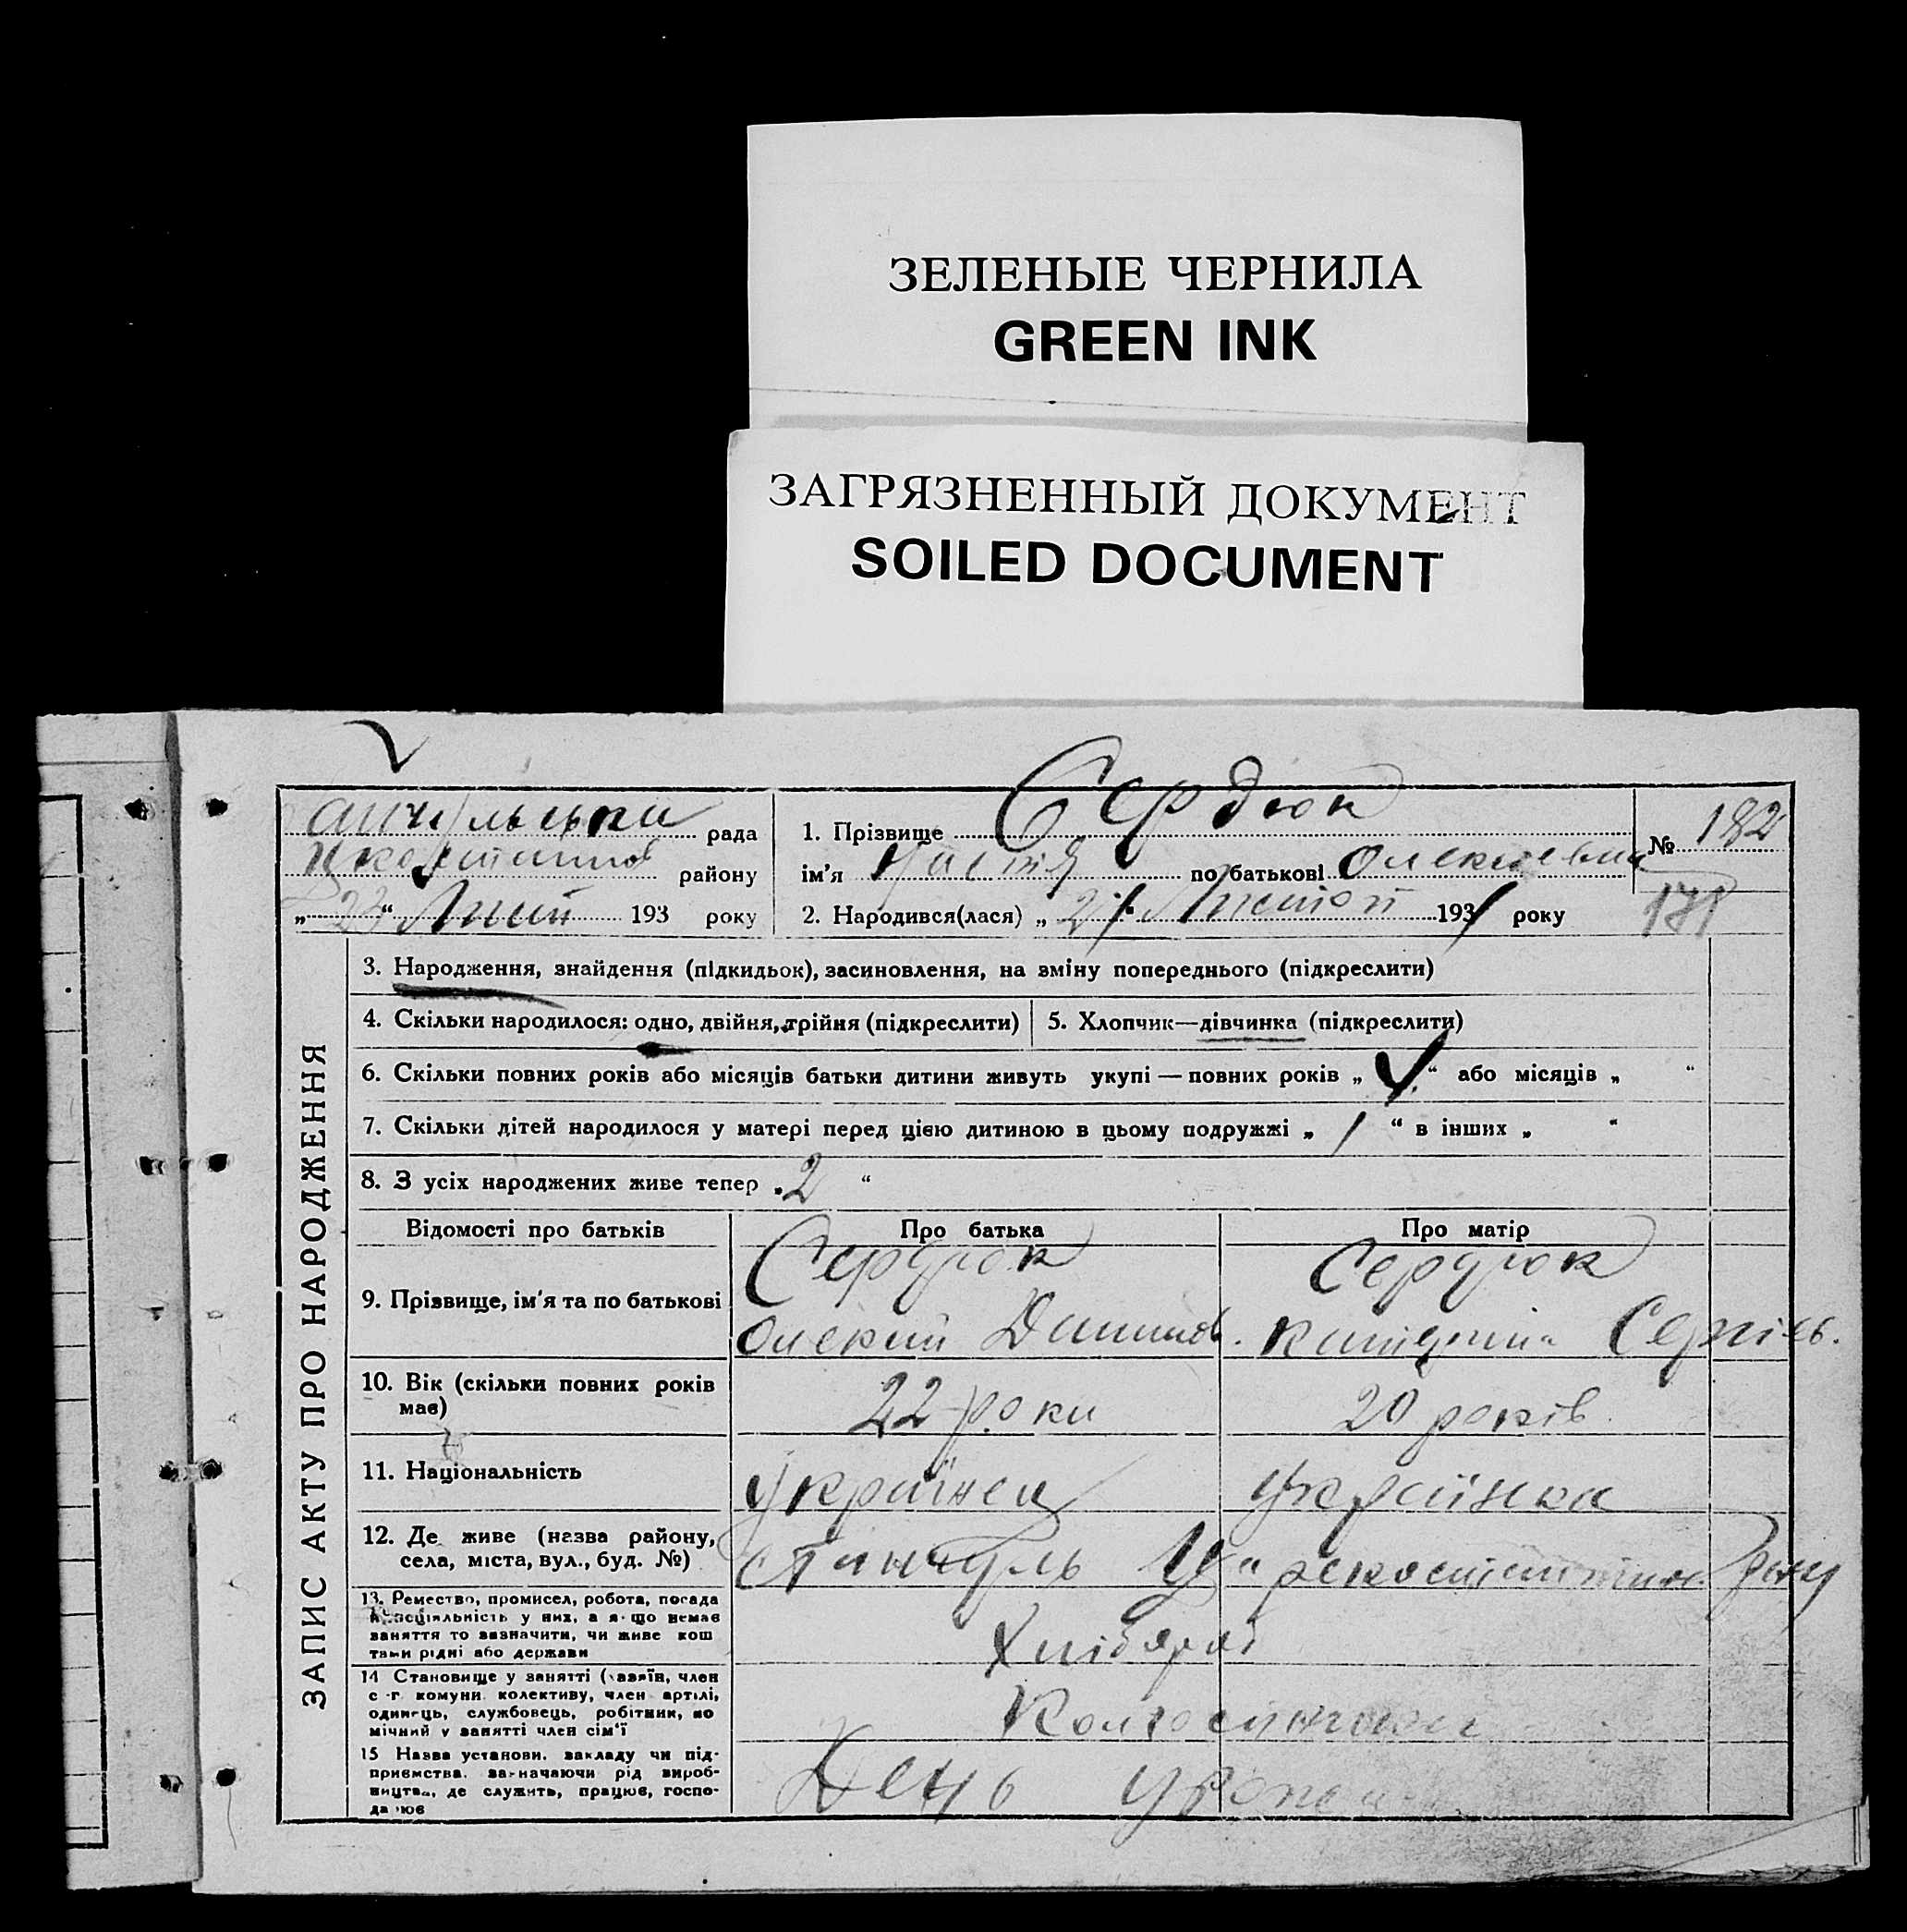 ЗЕЛЕНЫЕ ЧЕРНИЛА
GREEN INK
ЗАГРЯЗНЕННЫЙ ДОКУМЕНТ
SOILED DOCUMENT
ЗАПИС АКТУ ПРО НАРОДЖЕННЯ
рада
району
„23“ 193 року
1. Прізвище Сердюк
ім'я Настія по батькові Олексіевна
2. Народився(лася) „ 21 “ 1931 року
№ 182
171
3. Народження, знайдення (підкидьок), засиновлення, на зміну попереднього (підкреслити)
4. Скільки народилося: одно, двійня, трійня (підкреслити)
5. Хлопчик—дівчинка (підкреслити)
6. Скільки повних років або місяців батьки дитини живуть укупі — повних років „ “ або місяців „ “
7. Скільки дітей народилося у матері перед цією дитиною в цьому подружжі „ 1 “ в інших „ “
8. З усіх народжених живе тепер „ 2 “
Відомості про батьків
Про батька
Про матір
9. Прізвище, ім'я та по батькові
Сердюк
Олексій Данилов.
Сердюк
Катерина Сергіев.
10. Вік (скільки повних років
має)
22 роки
20 років
11. Національність
Українец
Українка
12. Де живе (назва району,
села, міста, вул., буд. №)
13. Ремество, промисел, робота, посада
й спеціяльність у них, а якщо немає
заняття то зазначити, чи живе кош
тами рідні або держави
Хлібороб
14 Становище у занятті (хазяїн, член
с-г. комуни, колективу, член артілі,
одинець, службовець, робітник, по
мічний у занятті член сім'ї
Колгоспники
15 Назва установи, закладу чи під-
приємства, зазначаючи рід вироб-
ництва, де служить, працює, госпо-
дарює
День урожая